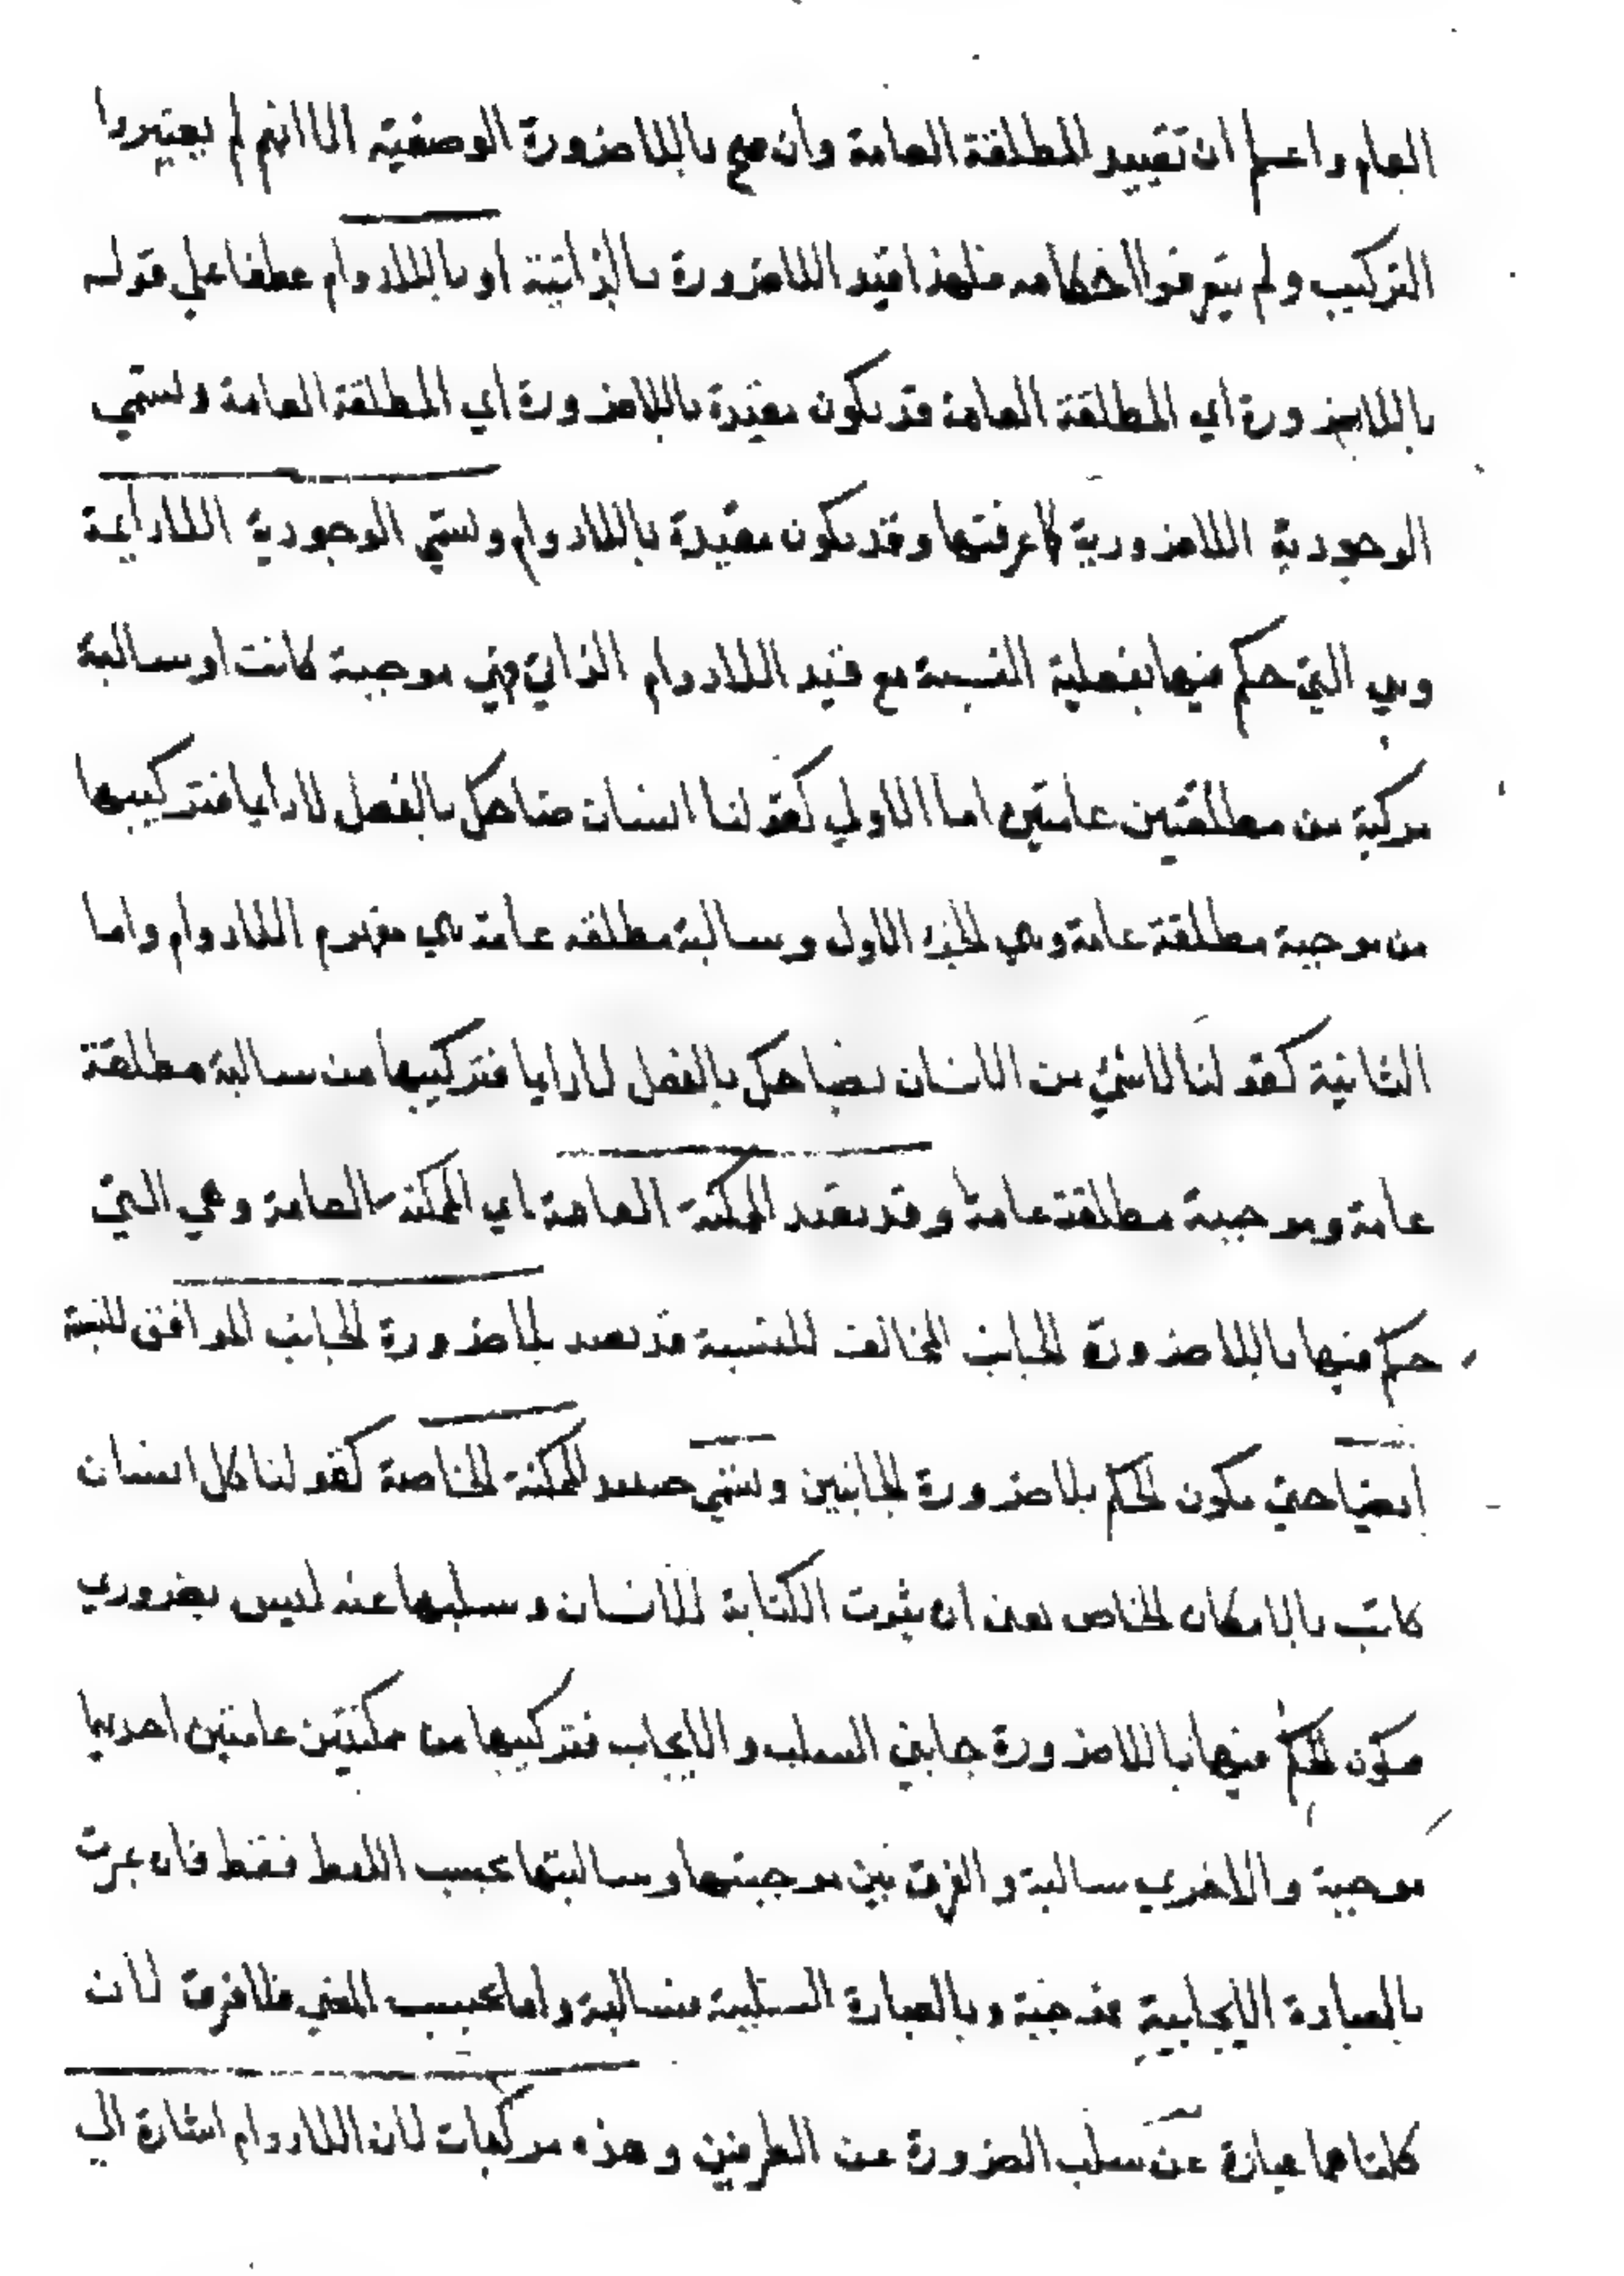 العام واعلم ان تقييد المطلقة العامة وأن صح باللاضرورة الوصفية الا انهم لم يعتبروا
التركيب ولم يتعرفوا احكامه فلهذا قيد اللاضرورة بالذاتية او باللادوام عطفا علي قوله
باللاضرورة اي المطلقة العامة قد تكون مقيدة باللاضرورة أي المطلقة العامة وتسمي
الوجودية اللاضرورية كما عرفتها وقد تكون مقيدة باللادوام وتسمي الوجودية اللادايمة
وهي التي حكم فيها بفعلية النسبة مع قيد اللادوام الذاتي فهي موجبة كانت او سالبة
مركبة من مطلقتين عامتين اما الاولي كقولنا انسان ضاحك بالفعل لادايما فتركيبها
من موجبة مطلقة عامة وهي الجزء الاول وسالبة مطلقه عامة هي مفهوم اللادوام واما
الثانية كقولنا لاشئ من الانسان بضاحك بالفعل لادايما فتركيبها من سالبة مطلقة
عامة وموجبة مطلقة عامة وقد تقيد الممكنة العامة اي الممكنة العامة وهي التي
حكم فيها باللاضرورة الجانب المخالف للنسبة قد تقيد بلاضرورة الجانب الموافق للنسبة
أيضا حتي يكون الحكم بلاضرورة الجانبين وتسمي حينئذ الممكنة الخاصة كقولنا كل انسان
كاتب بالامكان الخاص يعني ان ثبوت الكتابة للانسان وسلبها عنه ليس بضروري
فيكون الحكم فيها باللاضرورة جانبي السلب والايجاب فتركيبها من ممكنتين عامتين احديها
موجبة والاخري سالبة والفرق بين موجبتها وسالبتها بحسب اللفظ فقط فان عبرت
بالعبارة الايجابية فموجبة وبالعبارة السلبية فسالبة واما بحسب المعني فلا فرق لان
كلتاهما عبارة عن سلب الضرورة عن الطرفين وهذه مركبات لان اللادوام اشارة الي